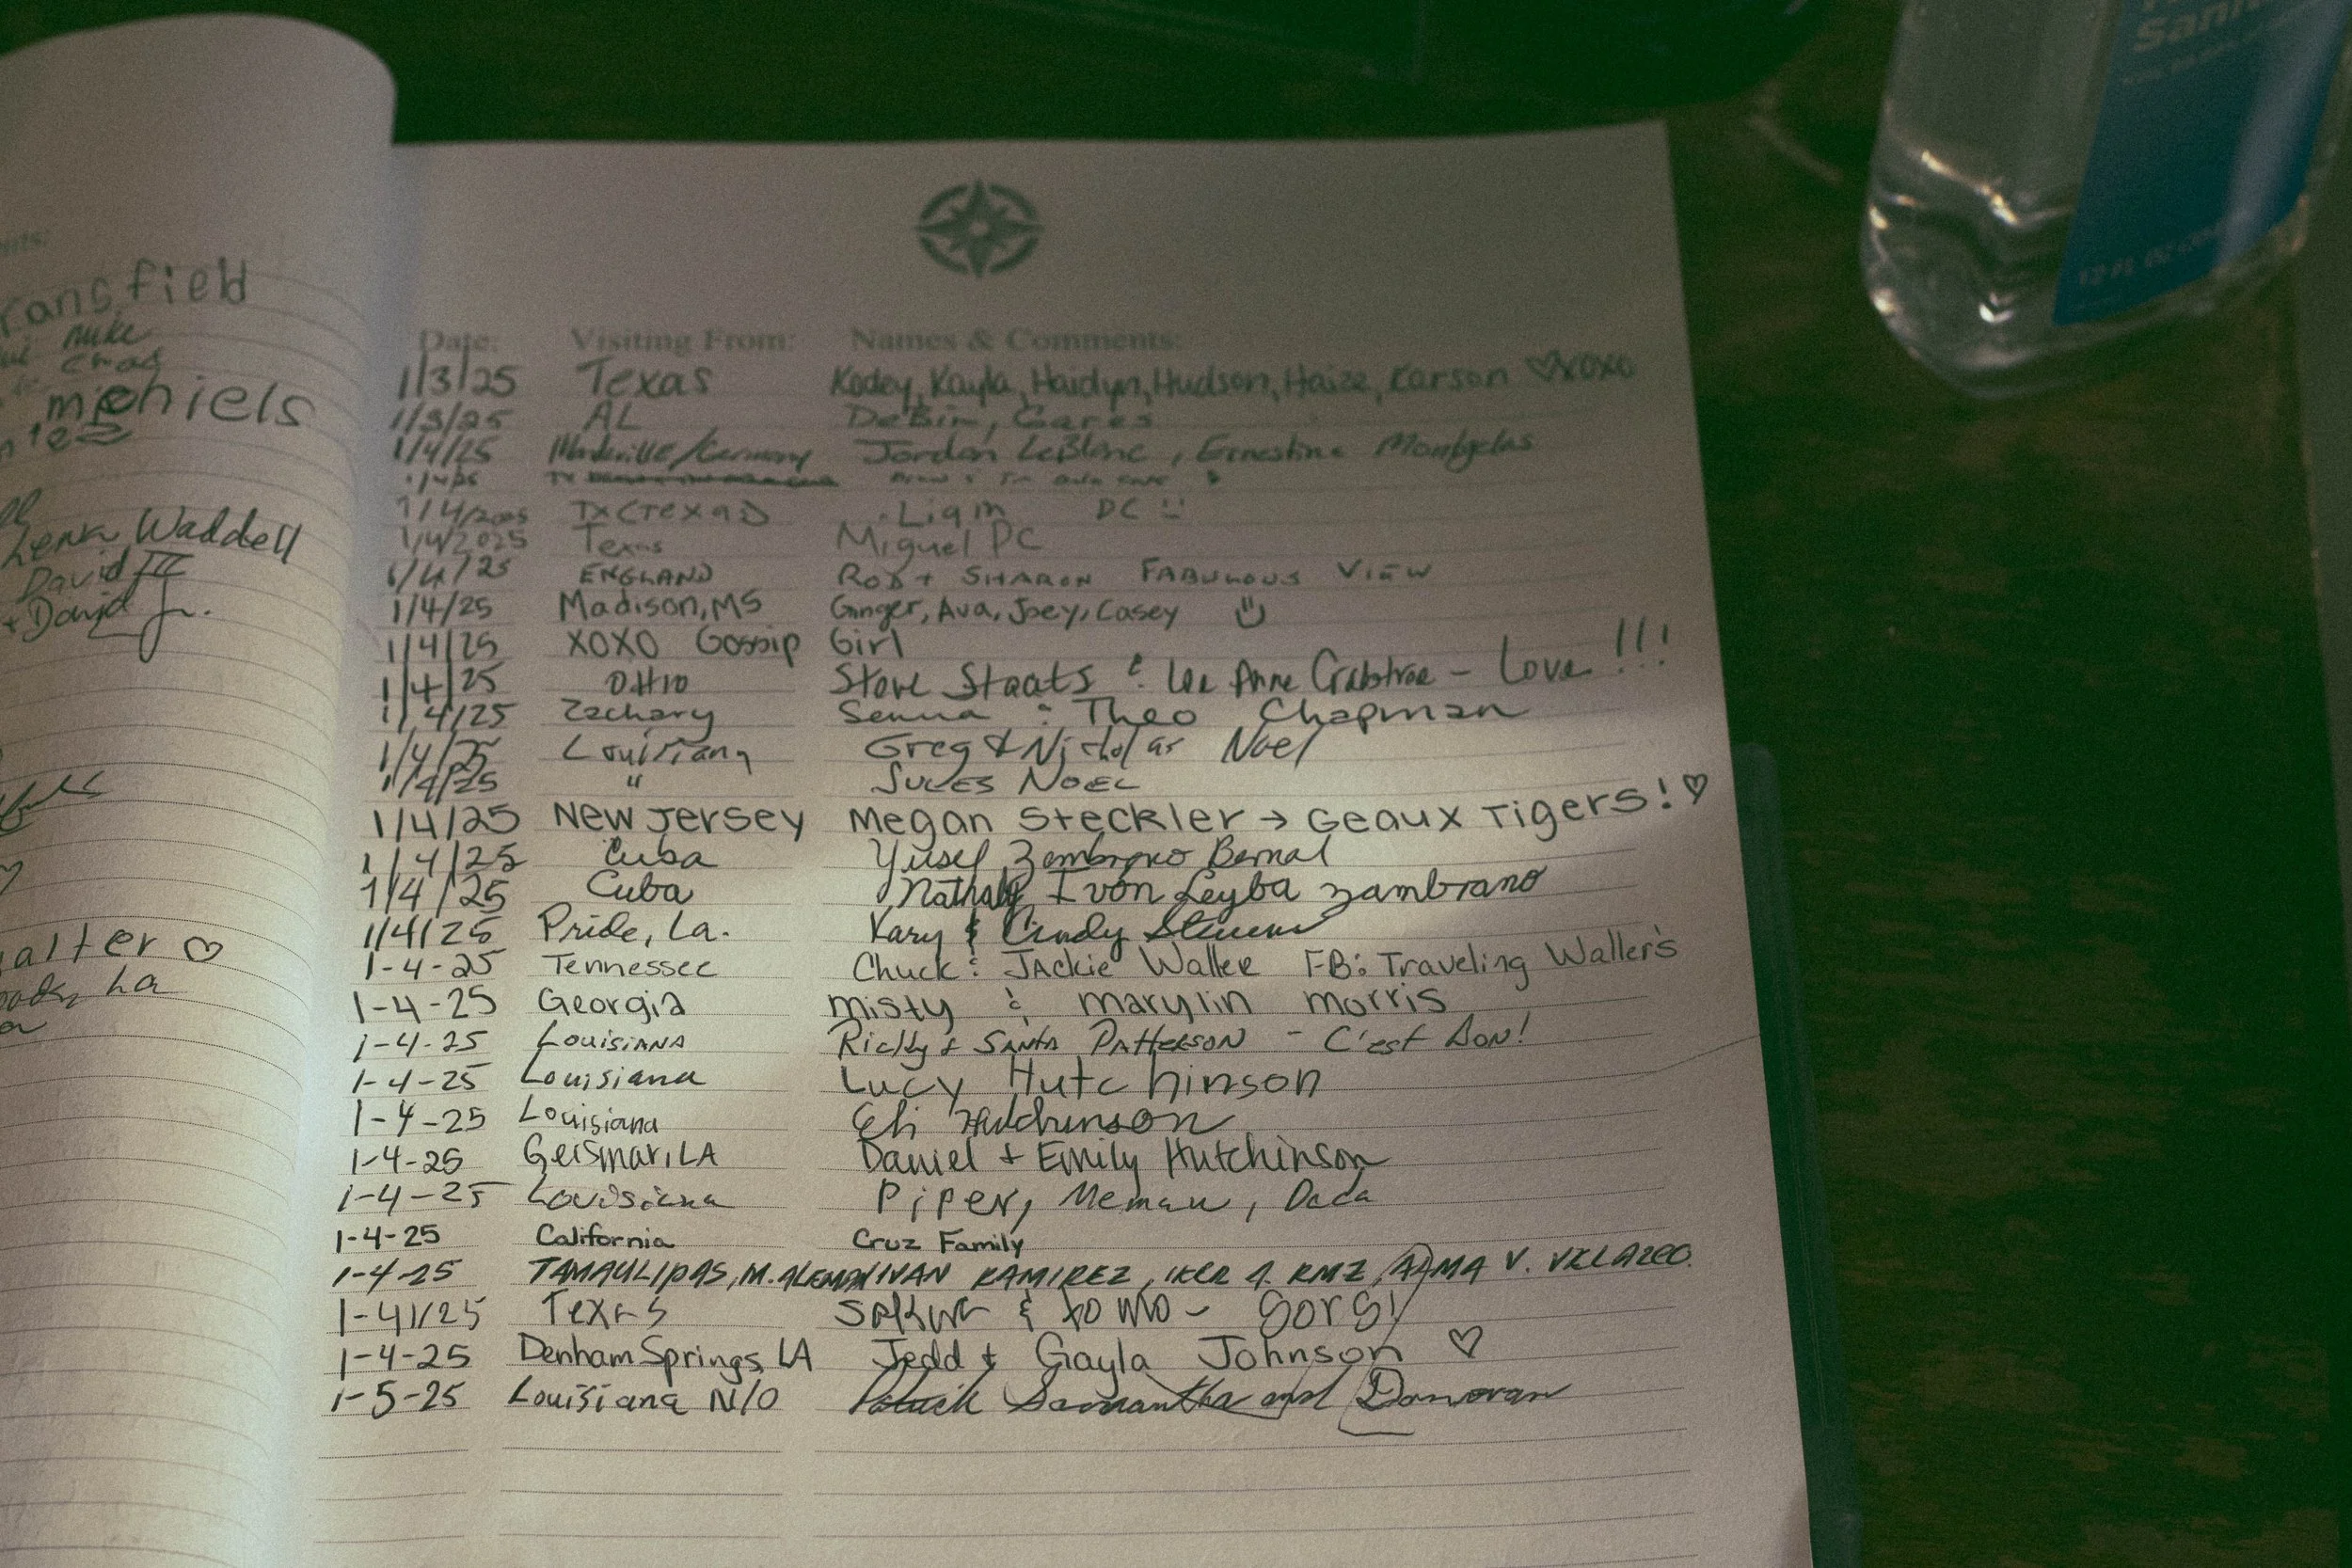 ansfield
mike
chas
michiels
Waddell
David III
+ David Jr.
alter ♡
La
Date: Visiting From: Names & Comments:
1/3/25 Texas Kodey, Kayla, Haidyn, Hudson, Haize, Karson ♡ xoxo
1/3/25 AL
1/4/25 /Germany Jordan LeBlanc, Ernestine
TX
1/4/2025 TX (Texas) DC
1/4/2025 Texas Miguel DC
1/4/25 ENGLAND ROB + SHARON FABULOUS VIEW
1/4/25 Madison, MS Ginger, Ava, Joey, Casey
1/4/25 XOXO Gossip Girl
1/4/25 OHIO Steve Staats & Lee Anne Crabtree - Love!!!
1/4/25 Zachary Senna & Theo Chapman
1/4/25 Louisiana Greg & Nicholas Noel
1/4/25 " JULES NOEL
1/4/25 New Jersey Megan Steckler → Geaux Tigers! ♡
1/4/25 Cuba Yusel Zambrano Bernal
1/4/25 Cuba Nathaly Ivón Leyba Zambrano
1/4/25 Pride, La. Kary & Cindy
1-4-25 Tennessee Chuck & Jackie Waller FB: Traveling Waller's
1-4-25 Georgia Misty & Marylin Morris
1-4-25 Louisiana Ricky & Santa Patterson - C'est Bon!
1-4-25 Louisiana Lucy Hutchinson
1-4-25 Louisiana Eli Hutchinson
1-4-25 Geismar, LA Daniel + Emily Hutchinson
1-4-25 Louisiana Piper, Memaw, Dada
1-4-25 California Cruz Family
1-4-25 TAMAULIPAS, M. IVAN RAMIREZ, IKER A. RMZ, ALMA V.
1-4-25 Texas
1-4-25 Denham Springs, LA Jedd + Gayla Johnson ♡
1-5-25 Louisiana N/O Patrick Samantha and Donovan
12 FL OZ